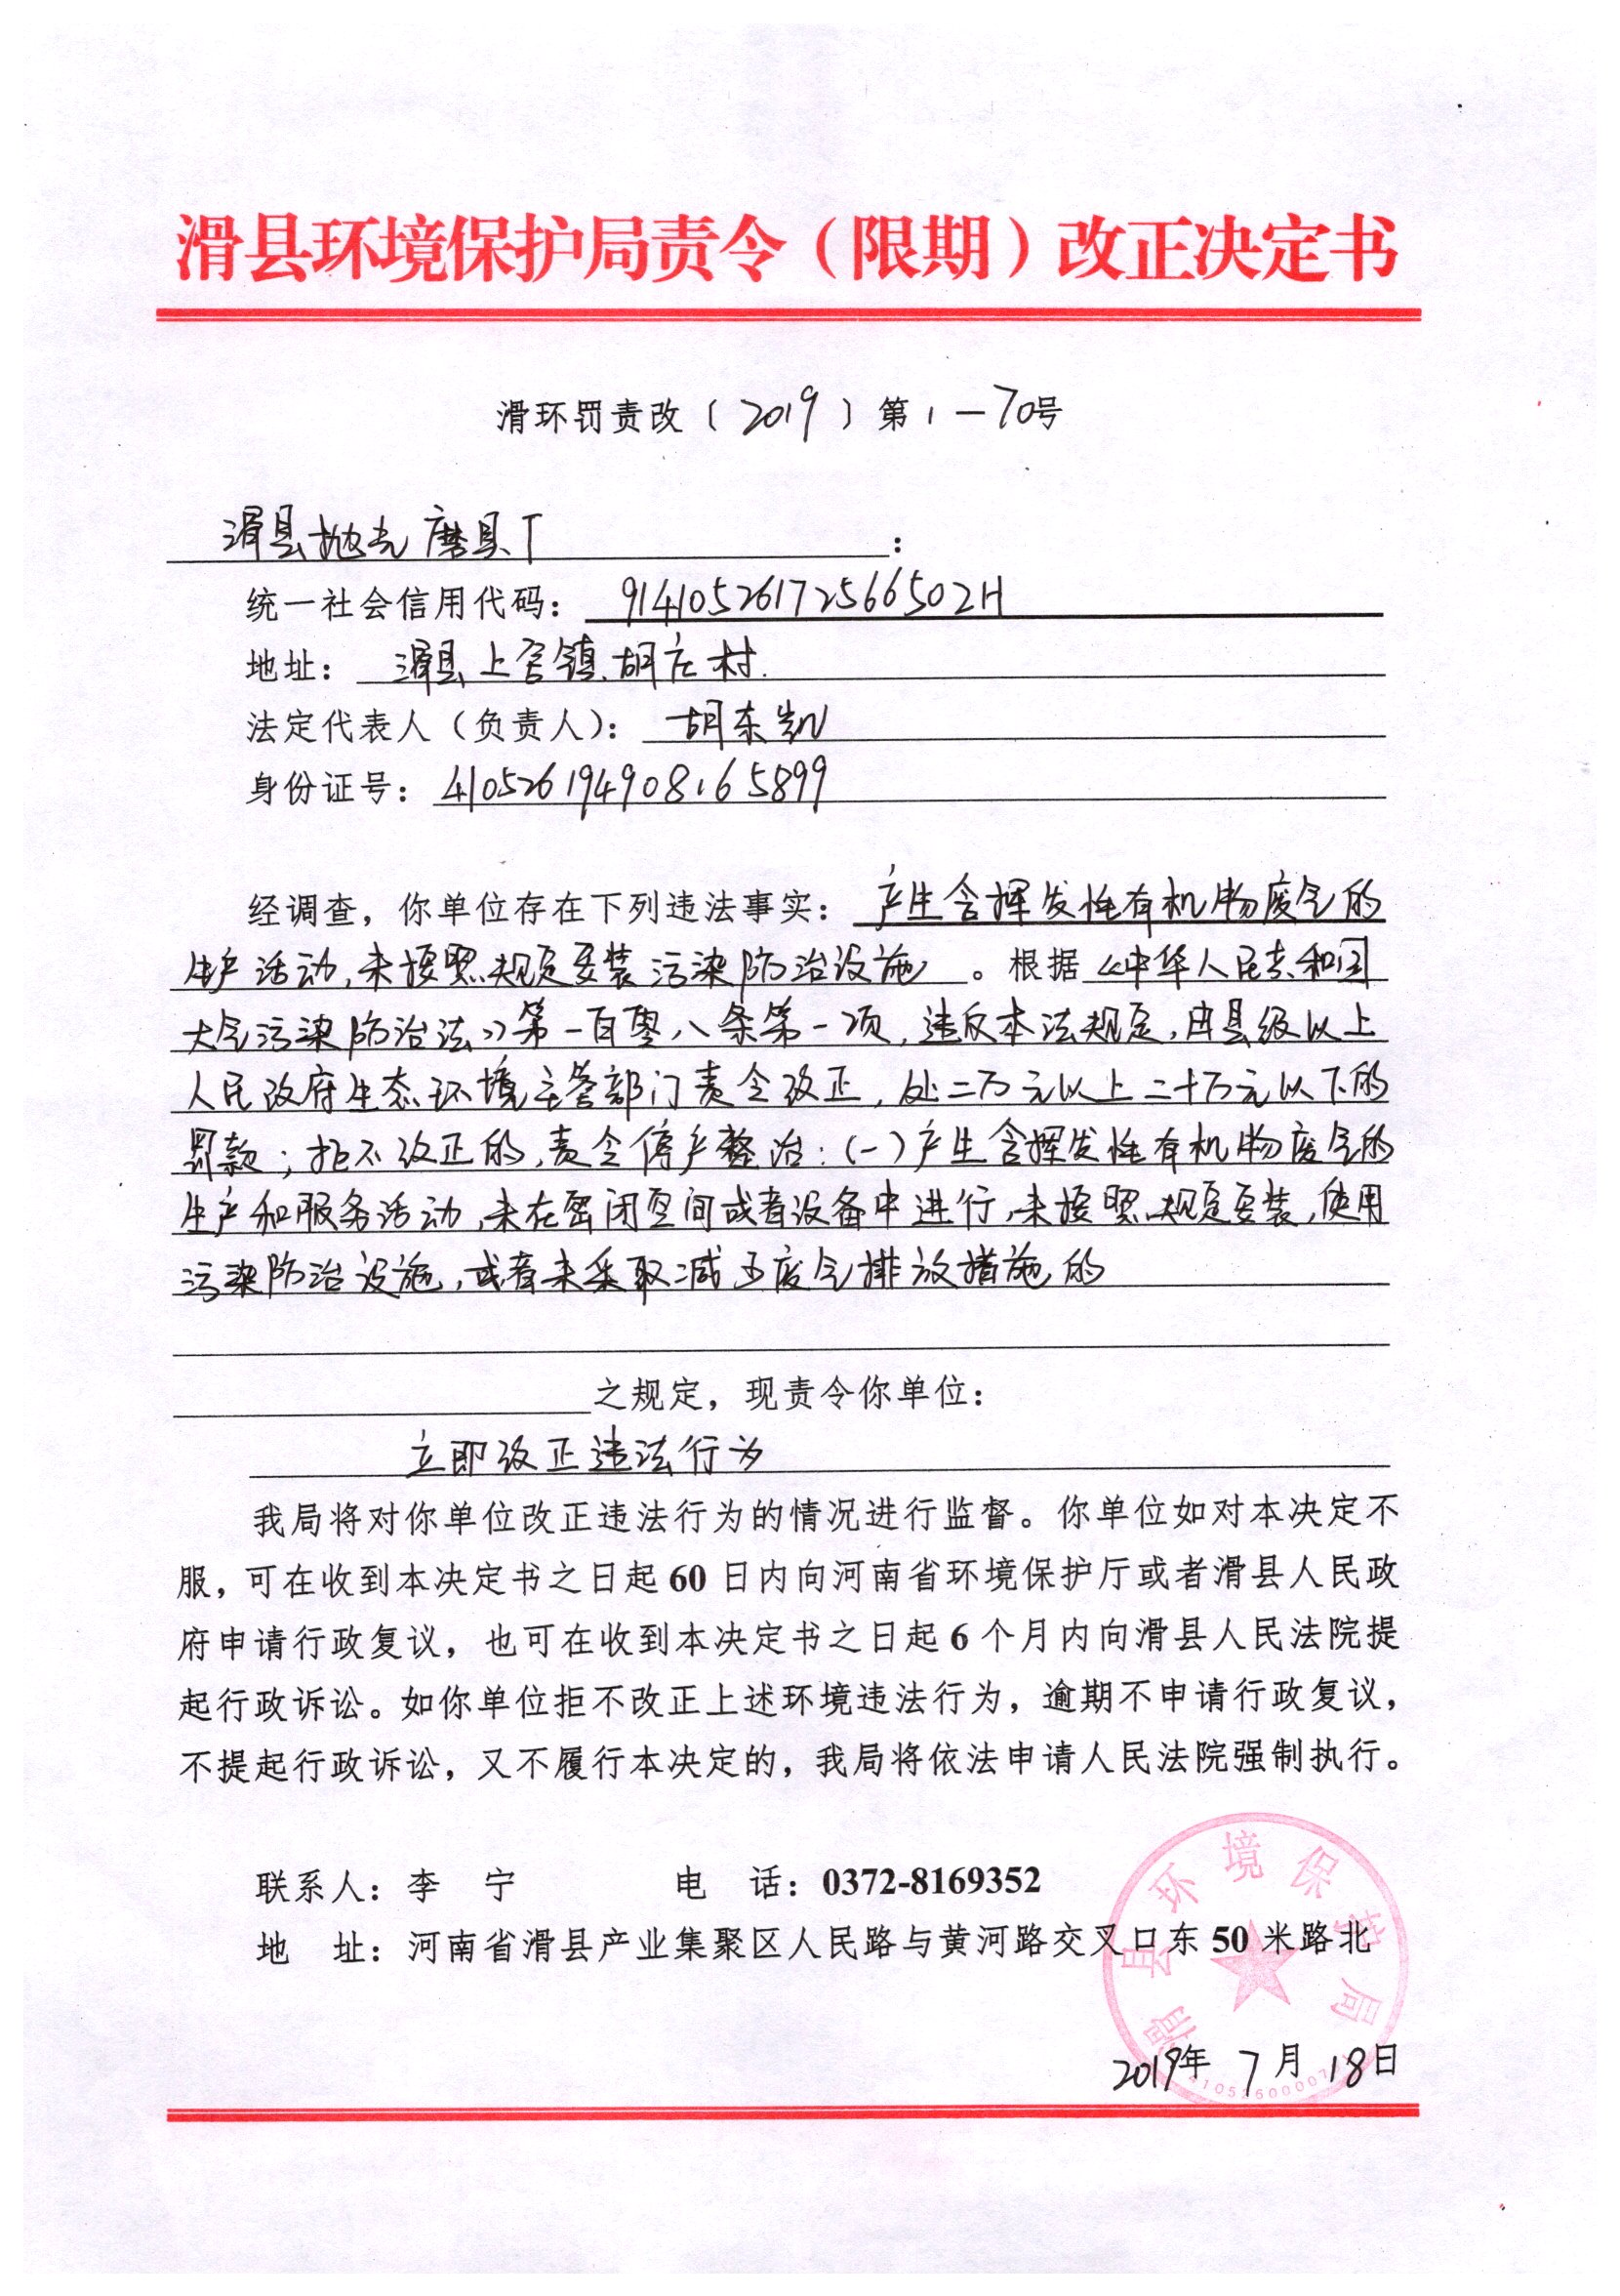 滑县环境保护局责令（限期）改正决定书
滑环罚责改〔2019〕第1-70号
滑县抛光磨具厂：
统一社会信用代码：91410526172566502H
地址：滑县上官镇胡庄村.
法定代表人（负责人）：胡东凯
身份证号：410526194908165899
经调查，你单位存在下列违法事实：产生含挥发性有机物废气的
生产活动,未按照规定安装污染防治设施。根据《中华人民共和国
大气污染防治法》第一百零八条第一项,违反本法规定,由县级以上
人民政府生态环境主管部门责令改正,处二万元以上二十万元以下的
罚款;拒不改正的,责令停产整治:(一)产生含挥发性有机物废气的
生产和服务活动,未在密闭空间或者设备中进行,未按照规定安装,使用
污染防治设施,或者未采取减少废气排放措施的
之规定，现责令你单位：
立即改正违法行为
我局将对你单位改正违法行为的情况进行监督。你单位如对本决定不
服，可在收到本决定书之日起60日内向河南省环境保护厅或者滑县人民政
府申请行政复议，也可在收到本决定书之日起6个月内向滑县人民法院提
起行政诉讼。如你单位拒不改正上述环境违法行为，逾期不申请行政复议，
不提起行政诉讼，又不履行本决定的，我局将依法申请人民法院强制执行。
联系人：李 宁 电 话：0372-8169352
地 址：河南省滑县产业集聚区人民路与黄河路交叉口东50米路北
滑县环境保护局
2019年7月18日